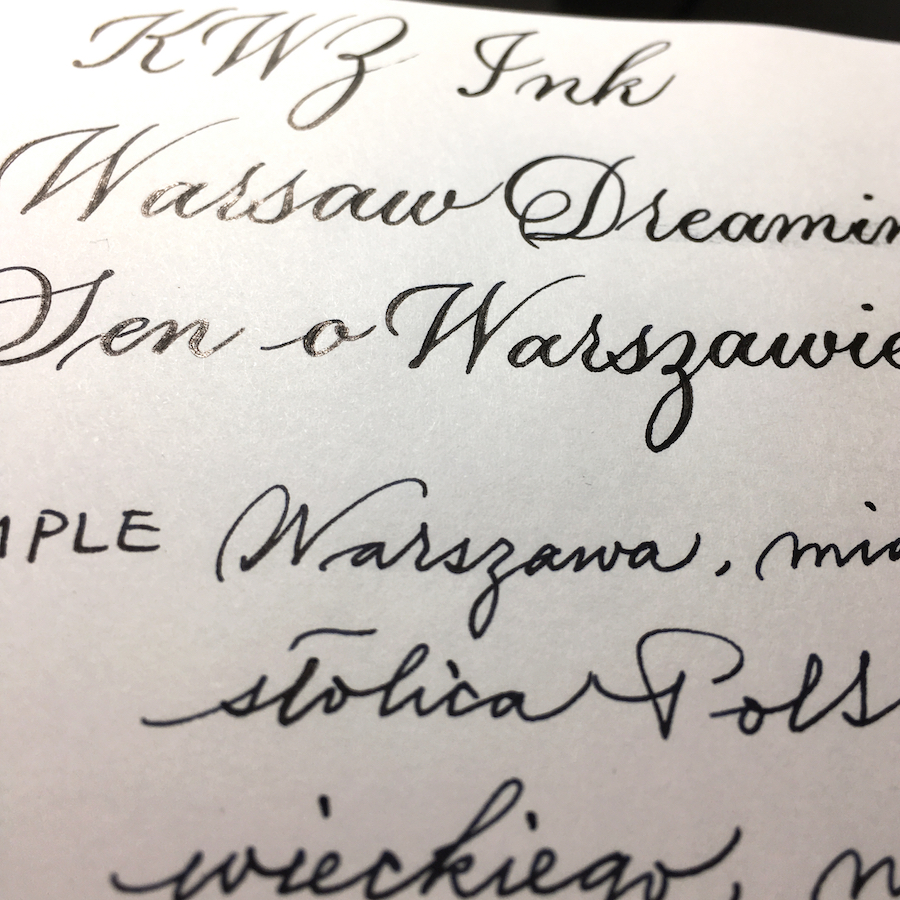 KWZ Ink
Warsaw Dreamin
Sen o Warszawie
MPLE Warszawa, mia
stolica Pols
wieckiego, n